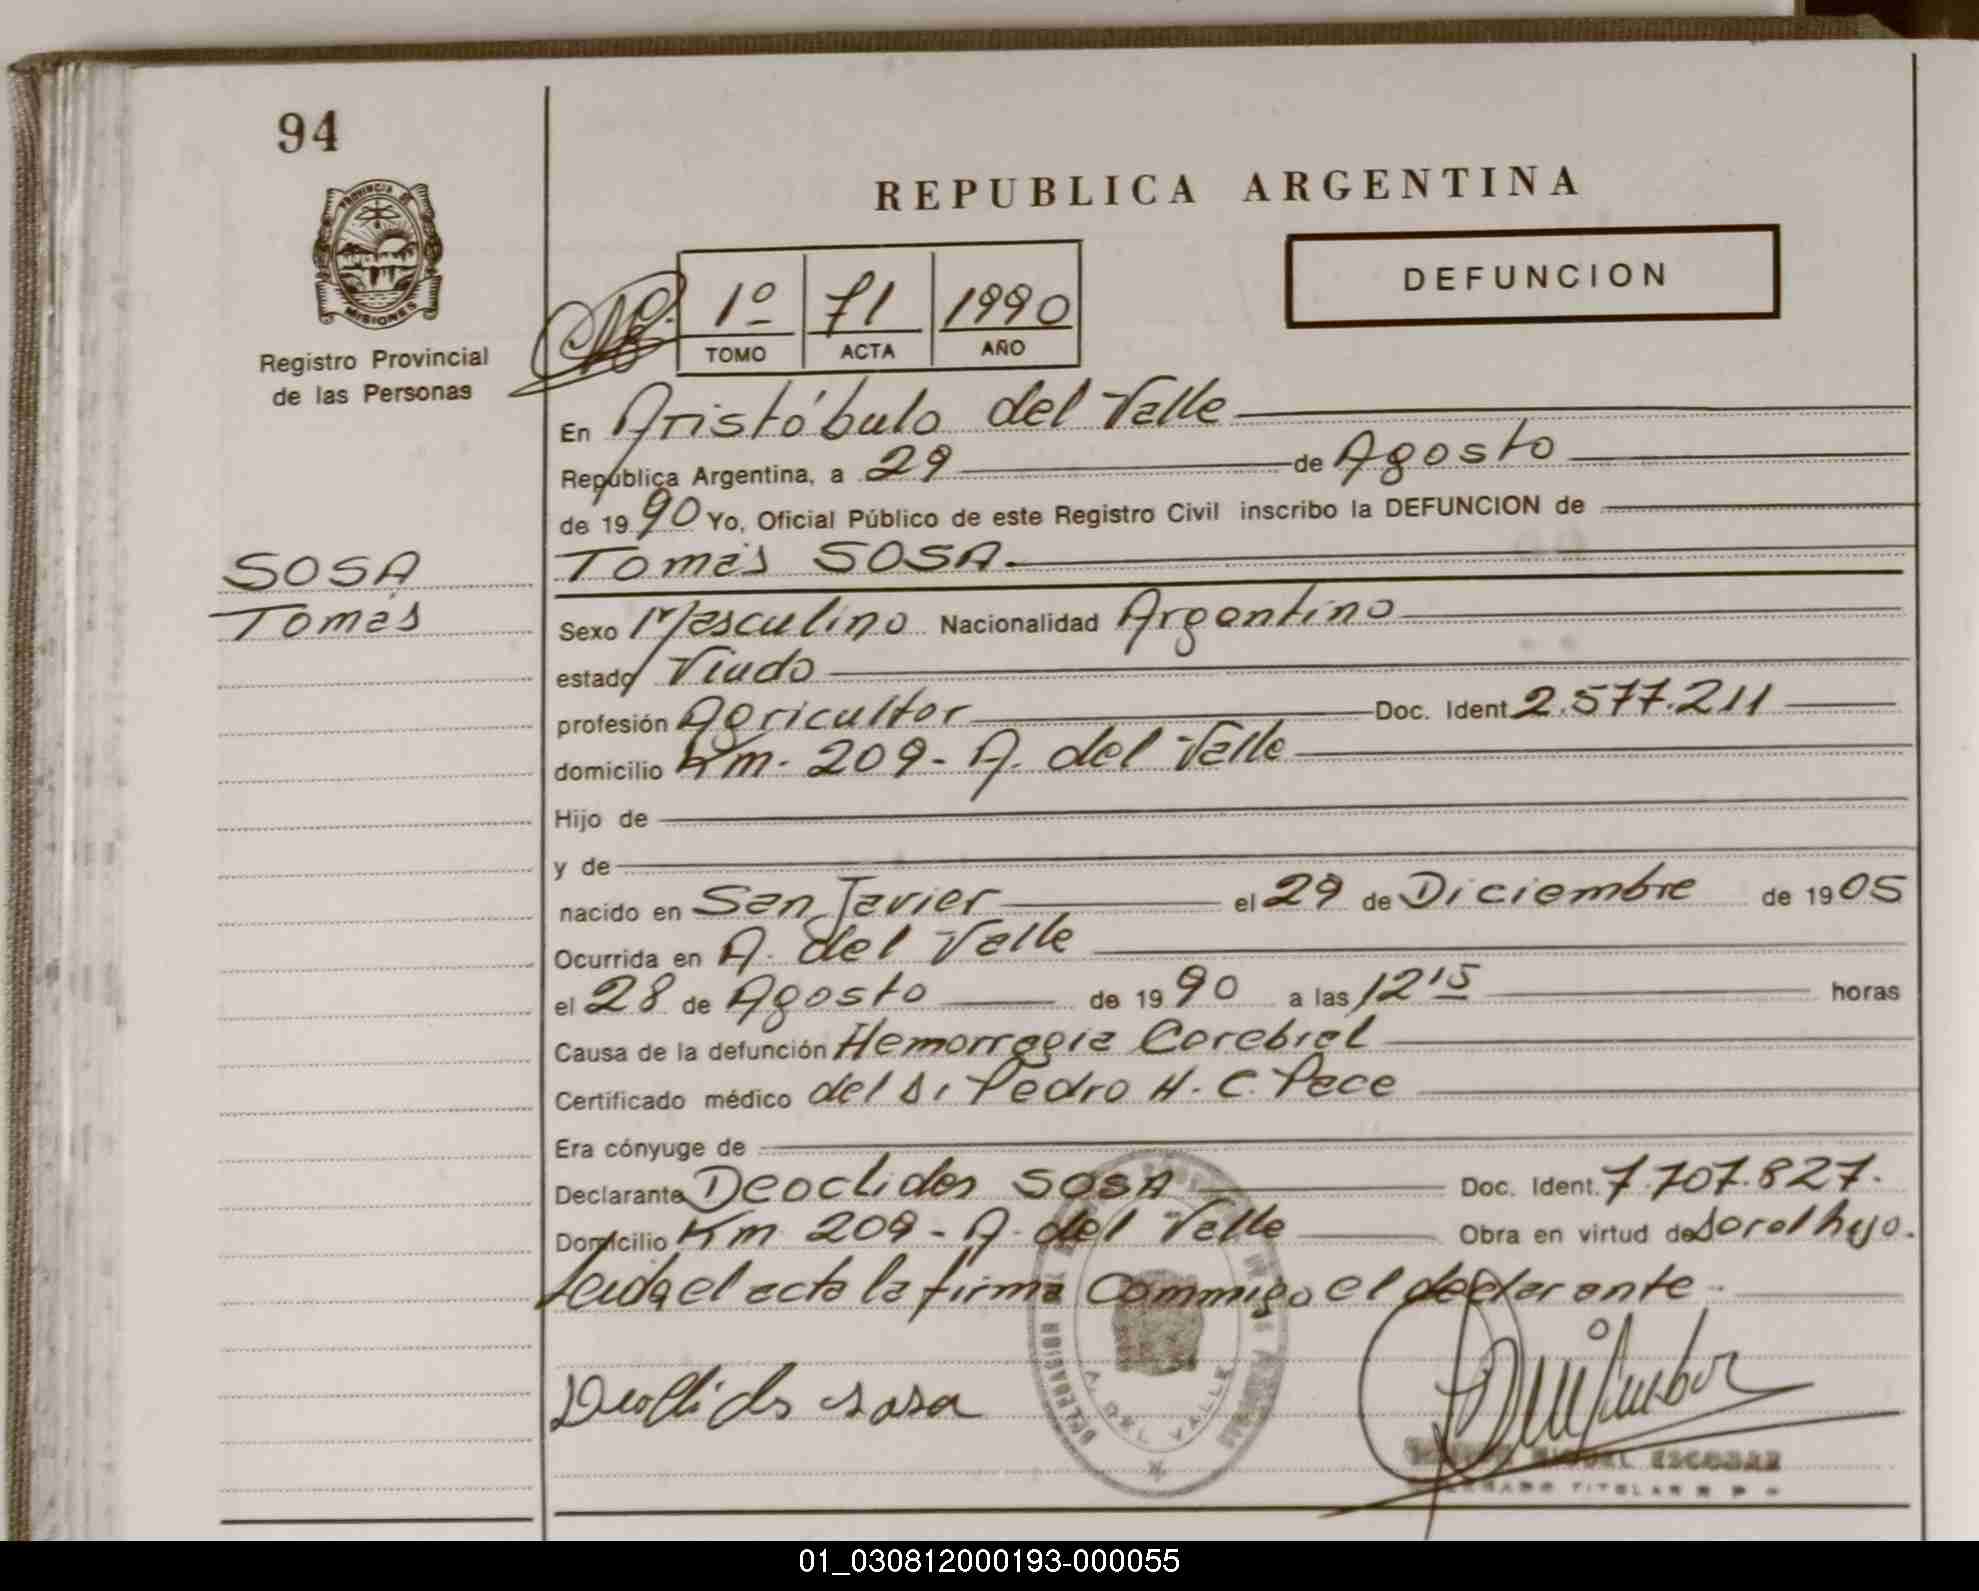 94
REPUBLICA ARGENTINA
PROVINCIA DE
MISIONES
Registro Provincial
de las Personas
DEFUNCION
1º 71 1990
TOMO ACTA AÑO
En Aristóbulo del Valle
República Argentina, a 29 de Agosto
de 1990 Yo, Oficial Público de este Registro Civil inscribo la DEFUNCION de
SOSA
Tomás
Tomás SOSA.
Sexo Masculino Nacionalidad Argentino
estado Viudo
profesión Agricultor Doc. Ident. 2.577.211
domicilio Km. 209 - A. del Valle
Hijo de
y de
nacido en San Javier el 29 de Diciembre de 1905
Ocurrida en A. del Valle
el 28 de Agosto de 1990 a las 12'15 horas
Causa de la defunción Hemorragia Cerebral
Certificado médico del Dr Pedro H. C. Pace
Era cónyuge de
Declarante Deoclides SOSA Doc. Ident. 7.707.827.
Domicilio Km 209 - A. del Valle Obra en virtud de ser el hijo.
Leida el acta la firma Commigo el declarante.
Deoclides sosa
A. DEL VALLE
MIGUEL ESCOBAR
TITULAR
01_030812000193-000055